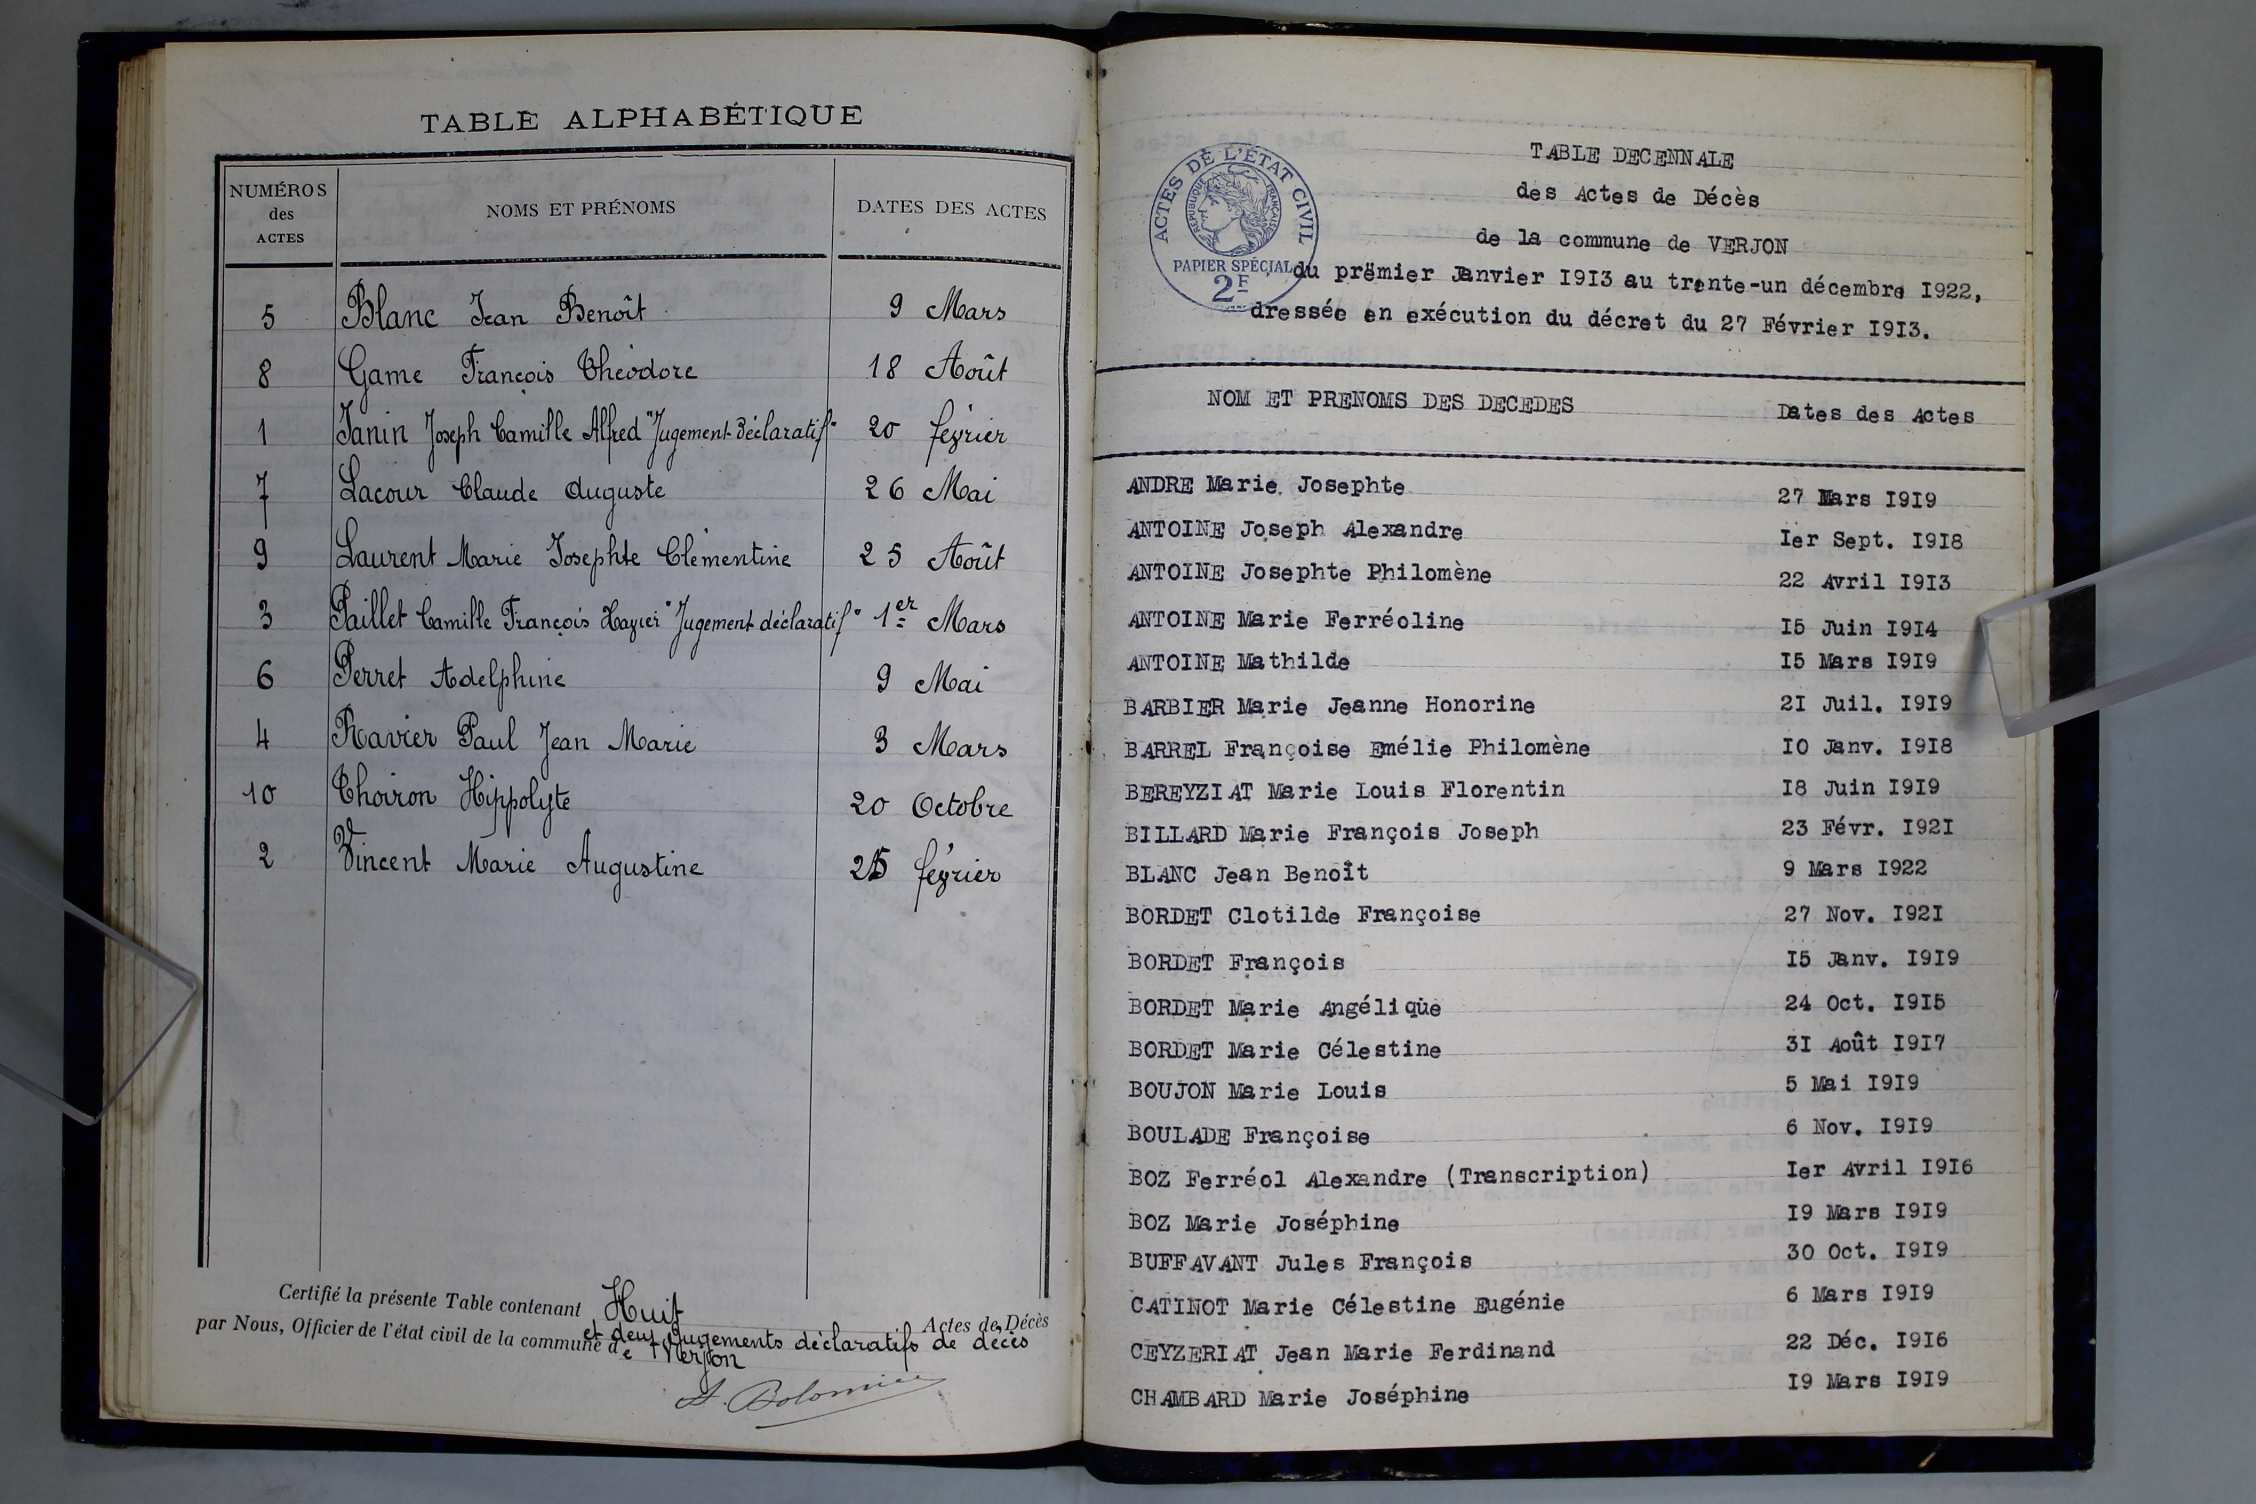 TABLE ALPHABÉTIQUE
NUMÉROS des ACTES NOMS ET PRÉNOMS DATES DES ACTES
5 Blanc Jean Benoît 9 Mars
8 Game François Théodore 18 Août
1 Janin Joseph Camille Alfred "Jugement Déclaratif" 20 février
7 Lacour Claude Auguste 26 Mai
9 Laurent Marie Josephte Clémentine 25 Août
3 Paillet Camille François Xavier "Jugement déclaratif" 1er Mars
6 Perret Adelphine 9 Mai
4 Ravier Paul Jean Marie 3 Mars
10 Thoiron Hippolyte 20 Octobre
2 Vincent Marie Augustine 25 février
Certifié la présente Table contenant Huit Actes de Décès
et deux Jugements déclaratifs de décès
par Nous, Officier de l'état civil de la commune de Verjon
A. Bolomier
ACTES DE L'ÉTAT CIVIL
RÉPUBLIQUE FRANÇAISE
PAPIER SPÉCIAL
2F
TABLE DECENNALE
des Actes de Décès
de la commune de VERJON
du prëmier Janvier I9I3 au trente-un décembre I922,
dressée en exécution du décret du 27 Février I9I3.
NOM ET PRENOMS DES DECEDES Dates des Actes
ANDRE Marie Josephte 27 Mars I9I9
ANTOINE Joseph Alexandre Ier Sept. I9I8
ANTOINE Josephte Philomène 22 Avril I9I3
ANTOINE Marie Ferréoline I5 Juin I9I4
ANTOINE Mathilde I5 Mars I9I9
BARBIER Marie Jeanne Honorine 2I Juil. I9I9
BARREL Françoise Emélie Philomène I0 Janv. I9I8
BEREYZIAT Marie Louis Florentin I8 Juin I9I9
BILLARD Marie François Joseph 23 Févr. I92I
BLANC Jean Benoît 9 Mars I922
BORDET Clotilde Françoise 27 Nov. I92I
BORDET François I5 Janv. I9I9
BORDET Marie Angélique 24 Oct. I9I5
BORDET Marie Célestine 3I Août I9I7
BOUJON Marie Louis 5 Mai I9I9
BOULADE Françoise 6 Nov. I9I9
BOZ Ferréol Alexandre (Transcription) Ier Avril I9I6
BOZ Marie Joséphine I9 Mars I9I9
BUFFAVANT Jules François 30 Oct. I9I9
CATINOT Marie Célestine Eugénie 6 Mars I9I9
CEYZERIAT Jean Marie Ferdinand 22 Déc. I9I6
CHAMBARD Marie Joséphine I9 Mars I9I9